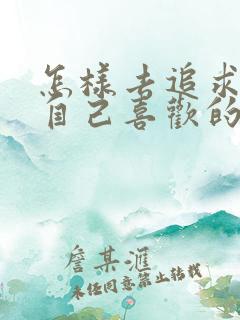 怎樣去追求
自己喜歡的
詹某滙
未经同意禁止转载